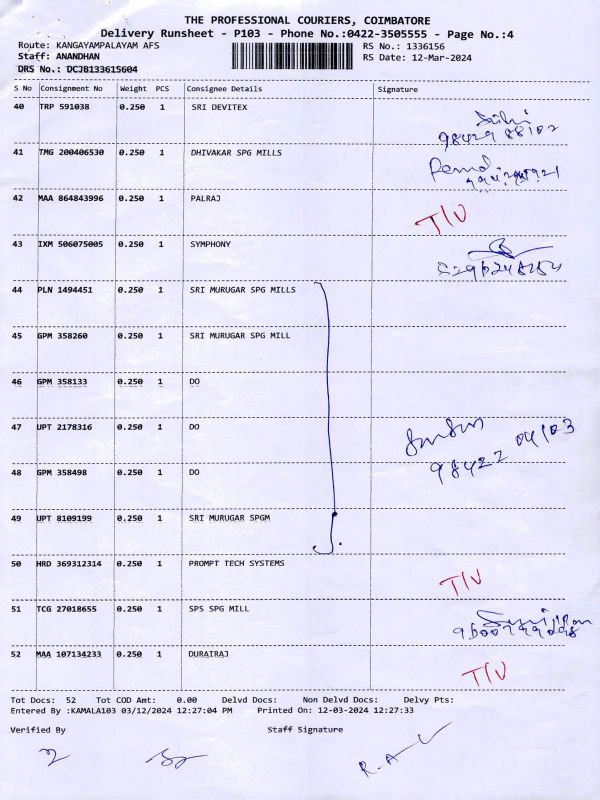 THE PROFESSIONAL COURIERS, COIMBATORE
Delivery Runsheet - P103 - Phone No.:0422-3505555 - Page No.:4
Route: KANGAYAMPALAYAM AFS RS No.: 1336156
Staff: ANANDHAN RS Date: 12-Mar-2024
DRS No.: DCJB133615604
S No Consignment No Weight PCS Consignee Details Signature
40 TRP 591038 0.250 1 SRI DEVITEX
98429 88102
41 TMG 200406530 0.250 1 DHIVAKAR SPG MILLS
42 MAA 864843996 0.250 1 PALRAJ T/V
43 IXM 506075005 0.250 1 SYMPHONY
44 PLN 1494451 0.250 1 SRI MURUGAR SPG MILLS
45 GPM 358260 0.250 1 SRI MURUGAR SPG MILL
46 GPM 358133 0.250 1 DO
47 UPT 2178316 0.250 1 DO
98422 04103
48 GPM 358498 0.250 1 DO
49 UPT 8109199 0.250 1 SRI MURUGAR SPGM
50 HRD 369312314 0.250 1 PROMPT TECH SYSTEMS T/V
51 TCG 27018655 0.250 1 SPS SPG MILL
52 MAA 107134233 0.250 1 DURAIRAJ T/V
Tot Docs: 52 Tot COD Amt: 0.00 Delvd Docs: Non Delvd Docs: Delvy Pts:
Entered By :KAMALA103 03/12/2024 12:27:04 PM Printed On: 12-03-2024 12:27:33
Verified By Staff Signature